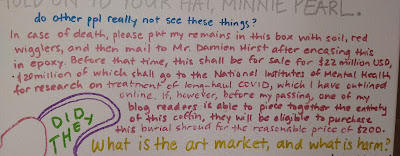 HOLD ON TO YOUR HAT, MINNIE PEARL.
do other ppl really not see these things?
In case of death, please put my remains in this box with soil, red
wigglers, and then mail to Mr. Damien Hirst after encasing this
in epoxy. Before that time, this shall be for sale for $22 million USD,
$20million of which shall go to the National Institutes of Mental Health
for research on treatment of long-haul COVID, which I have outlined
online. If, however, before my passing, one of my
blog readers is able to piece together the entirety
of this coffin, they will be eligible to purchase
this burial shroud for the reasonable price of $200.
DID
THEY
What is the art market, and what is harm?